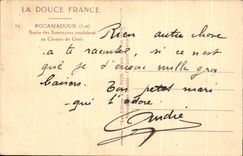 LA DOUCE FRANCE
ROCAMADOUR (Lot)
Sortie des Sanctuaires conduisant
au Chemin de Croix
Rien autre chose
a te raconter, si ce n'est
que je t'envoie mille gros
baisers. Ton petit mari
qui t'adore
André